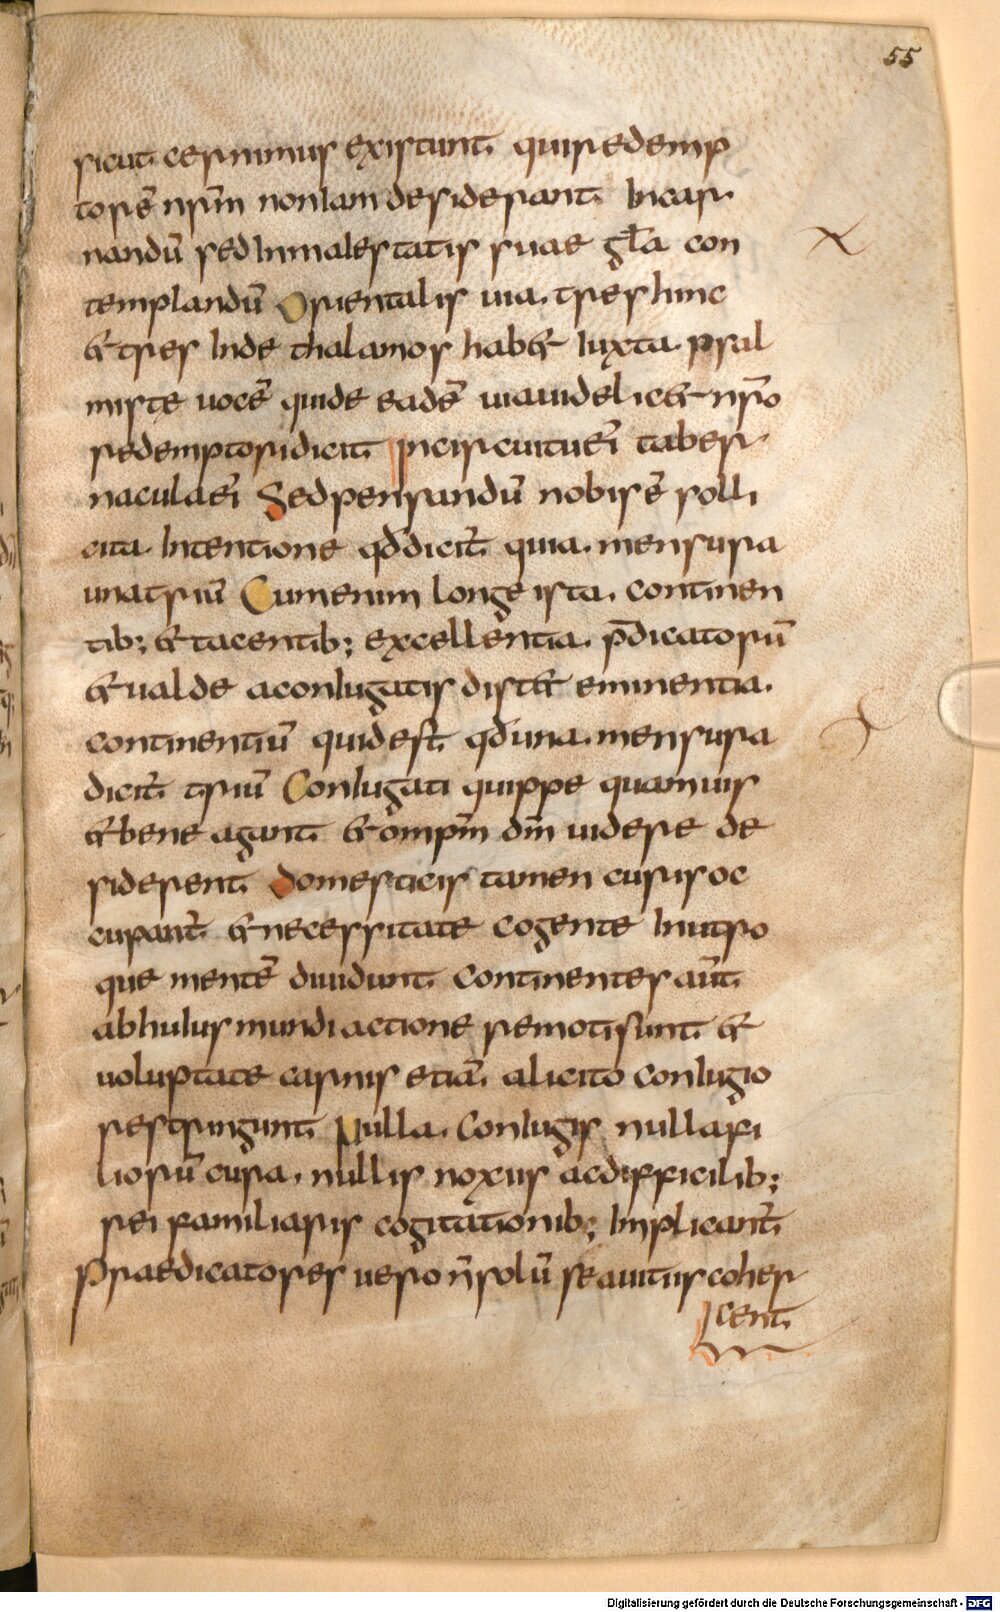 55
sicut cernimus existunt qui redemp
torē nr̄m non iam desiderant incar
nandū sed in maiestatis suae gl̄a con
templandū Orientalis uia tres hinc
& tres inde thalamos hab& iuxta psal
miste uocē qui de eadē uia uidelic& nr̄o
redemptori dicit In circuitu ei' taber
naculū ei' Sed pensandū nobis ē solli
cita intentione qd̄ dicit' quia mensura
una triū Cum enim longe ista continen
tib; & tacentib; excellentia p̄dicatorū
& ualde a coniugatis dist& eminentia
continentiū quid est qd̄ una mensura
dicit' triū Coniugati quippe quamuis
& bene agant & omp̄m dm̄ uidere de
siderent Domesticis tamen curis oc
cupant' & necessitate cogente in utro
que mentē diuidunt Continentes aut̄
ab huius mundi actione remoti sunt &
uoluptate carnis etiā a licito coniugio
restringunt Nulla coniugis nulla fi
liorū cura nullis noxiis ac difficilib;
rei familiaris cogitationib; implicant'
Praedicatores uero n̄ solū se a uitiis coher
cent
Digitalisierung gefördert durch die Deutsche Forschungsgemeinschaft - DFG